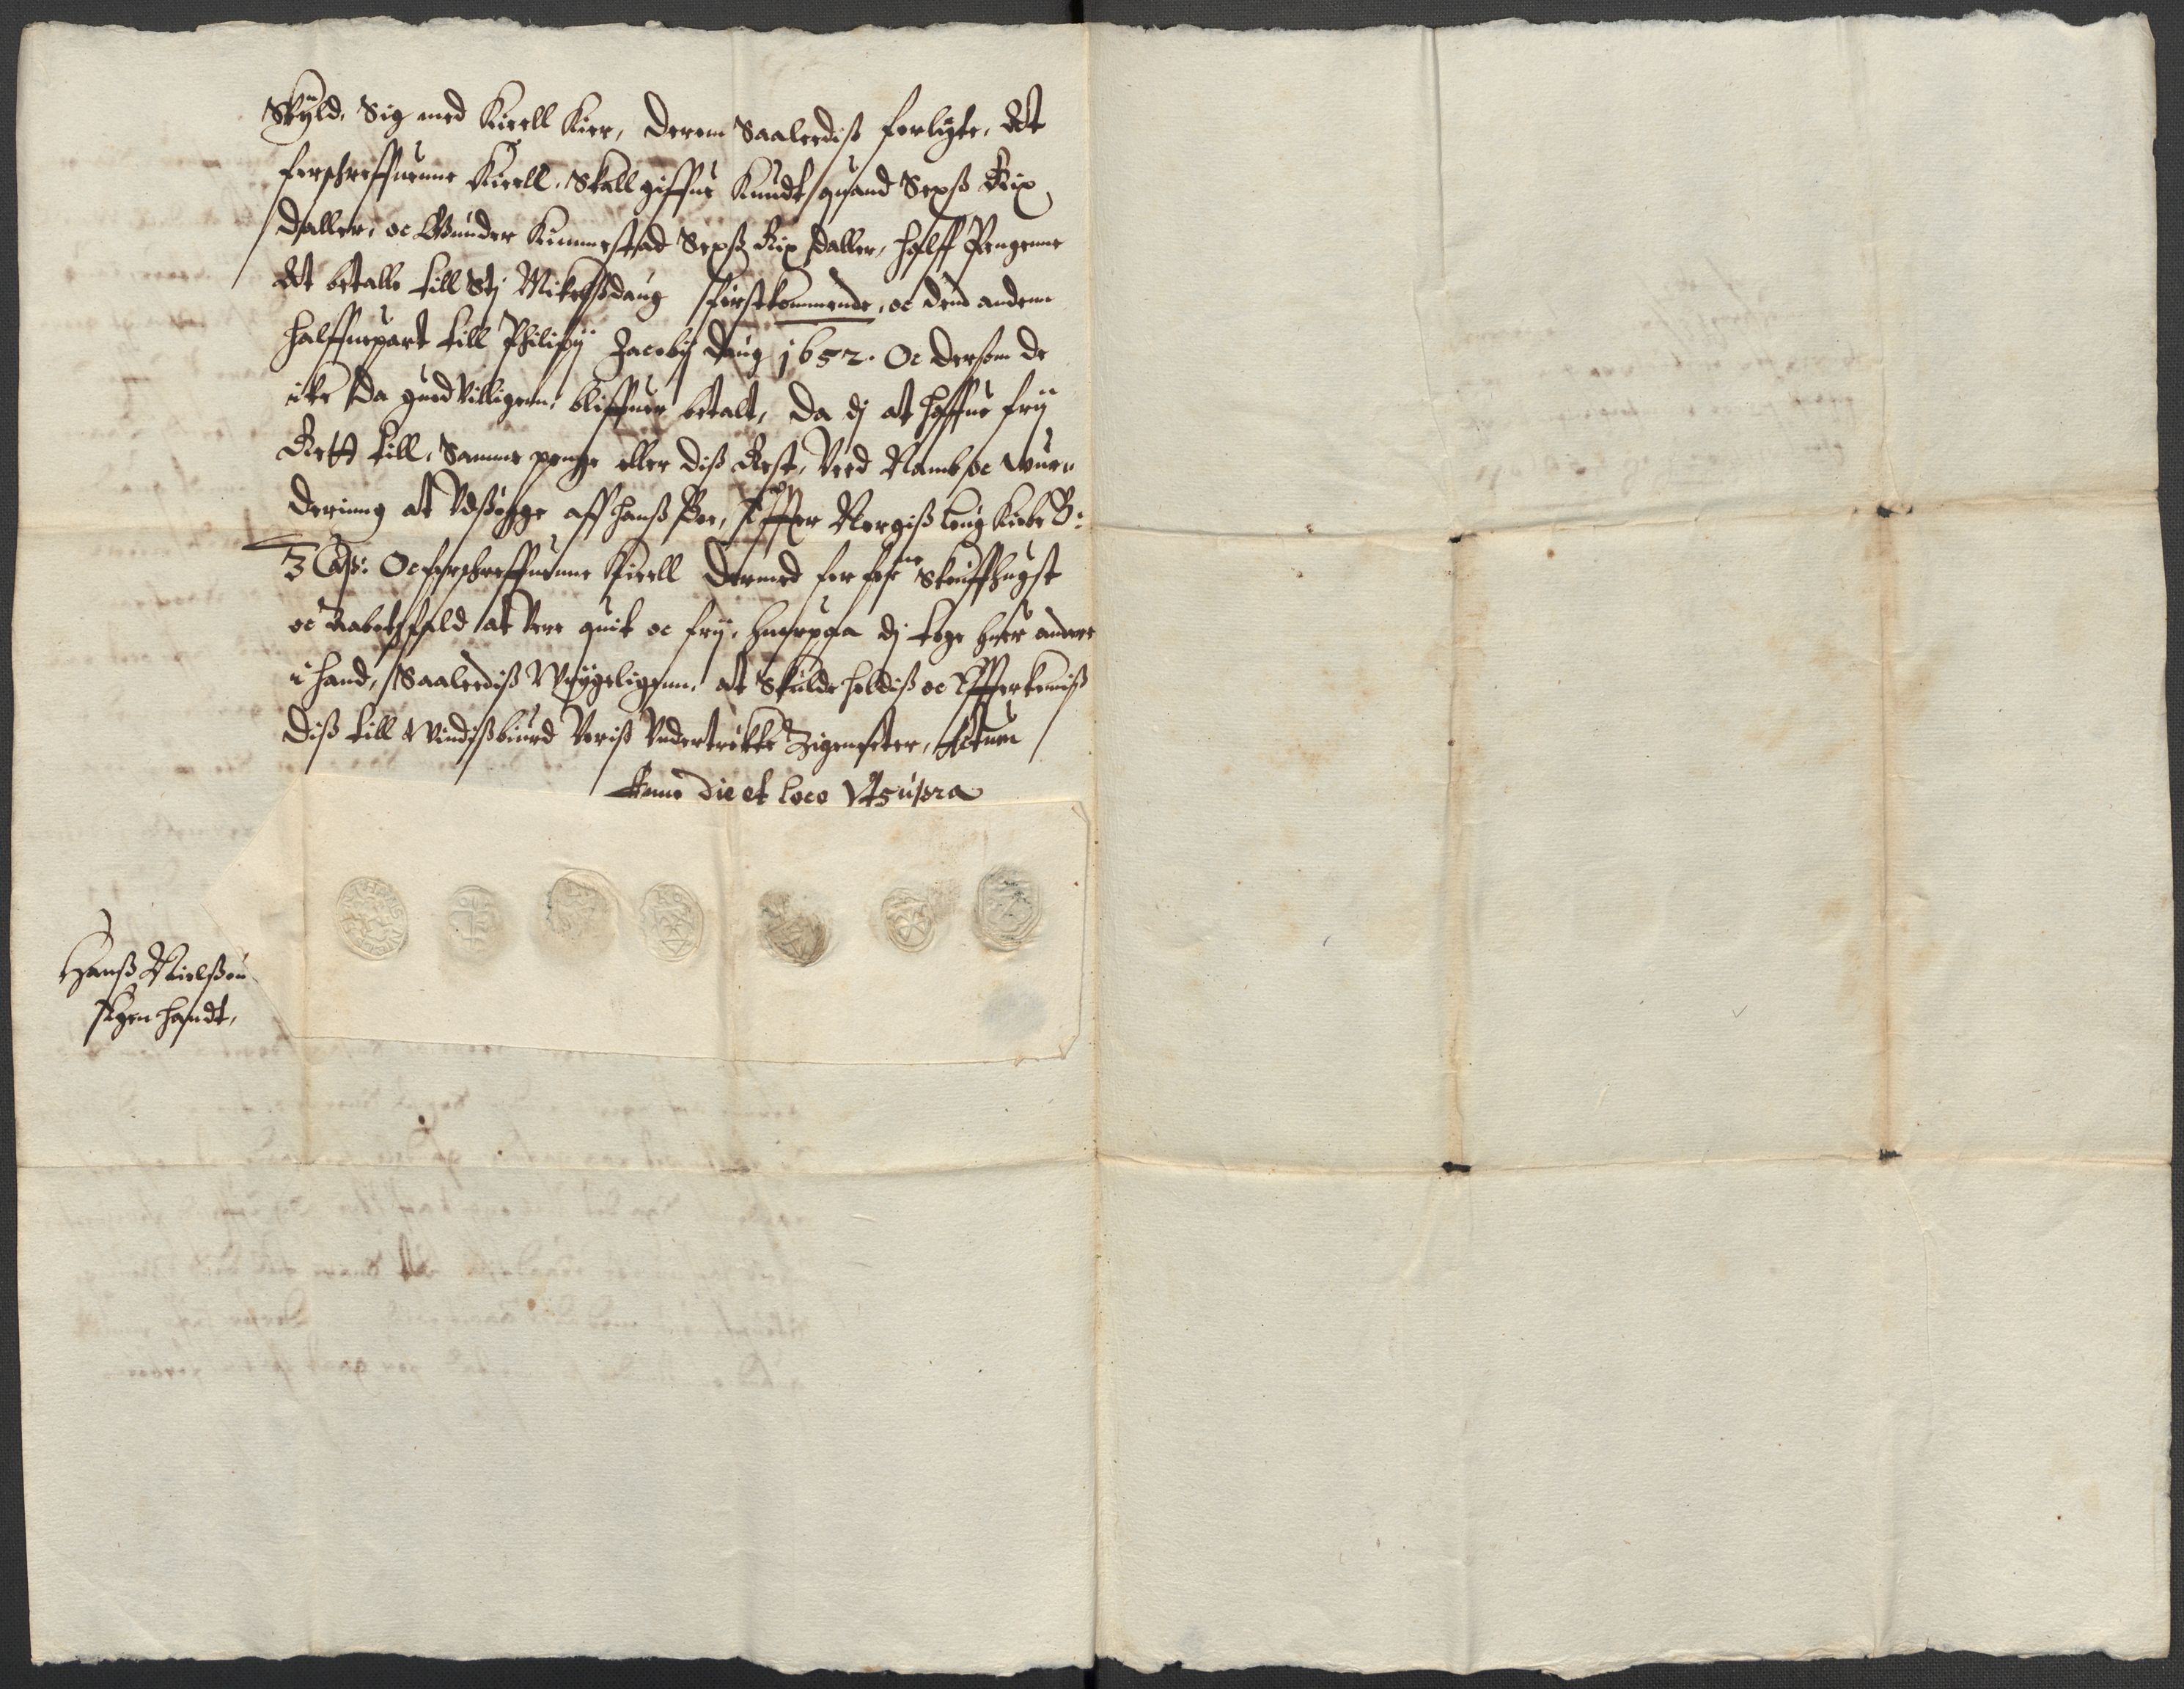 Skyld, Sig med Kield Kier, derom Saaleediß forligte, Att
forschreffuenne Kield, Skall giffue Knudt Quand Sexß Rix
daller, oc Gunder Kummestad Sexß Rix daller, halff Pengenne
Att betalle till Stj Mikelßdaug førstkommende, oc dend anden
halffuepart till Philipij Jacobij daug 1652. Oc dersom de
icke da guedvilligenn, bliffuer betalt, da dj at haffue frij
Rett till, Samme penge eller diß Rest, Veed Namb oc wur¬
dering at Vdsøge aff hanß Boe, Effter Norgiß loug Kiøbe B:
3 Cap: Oc forschreffuenne Kield dermed for forne Skouffhugst
oc Aaboetzfald at Vere quit oc frij, huorpaa dj toge huer andere
i haand, Saaleediß Wrygeligenn, at Skulde holdiß oc Effterkomiß
Diß till Windißbiurd Voriß Vndertrøkte Zigeneter, Actum
Anno die et loco Vt supra
Hanß Nielßøn
Egen handt,